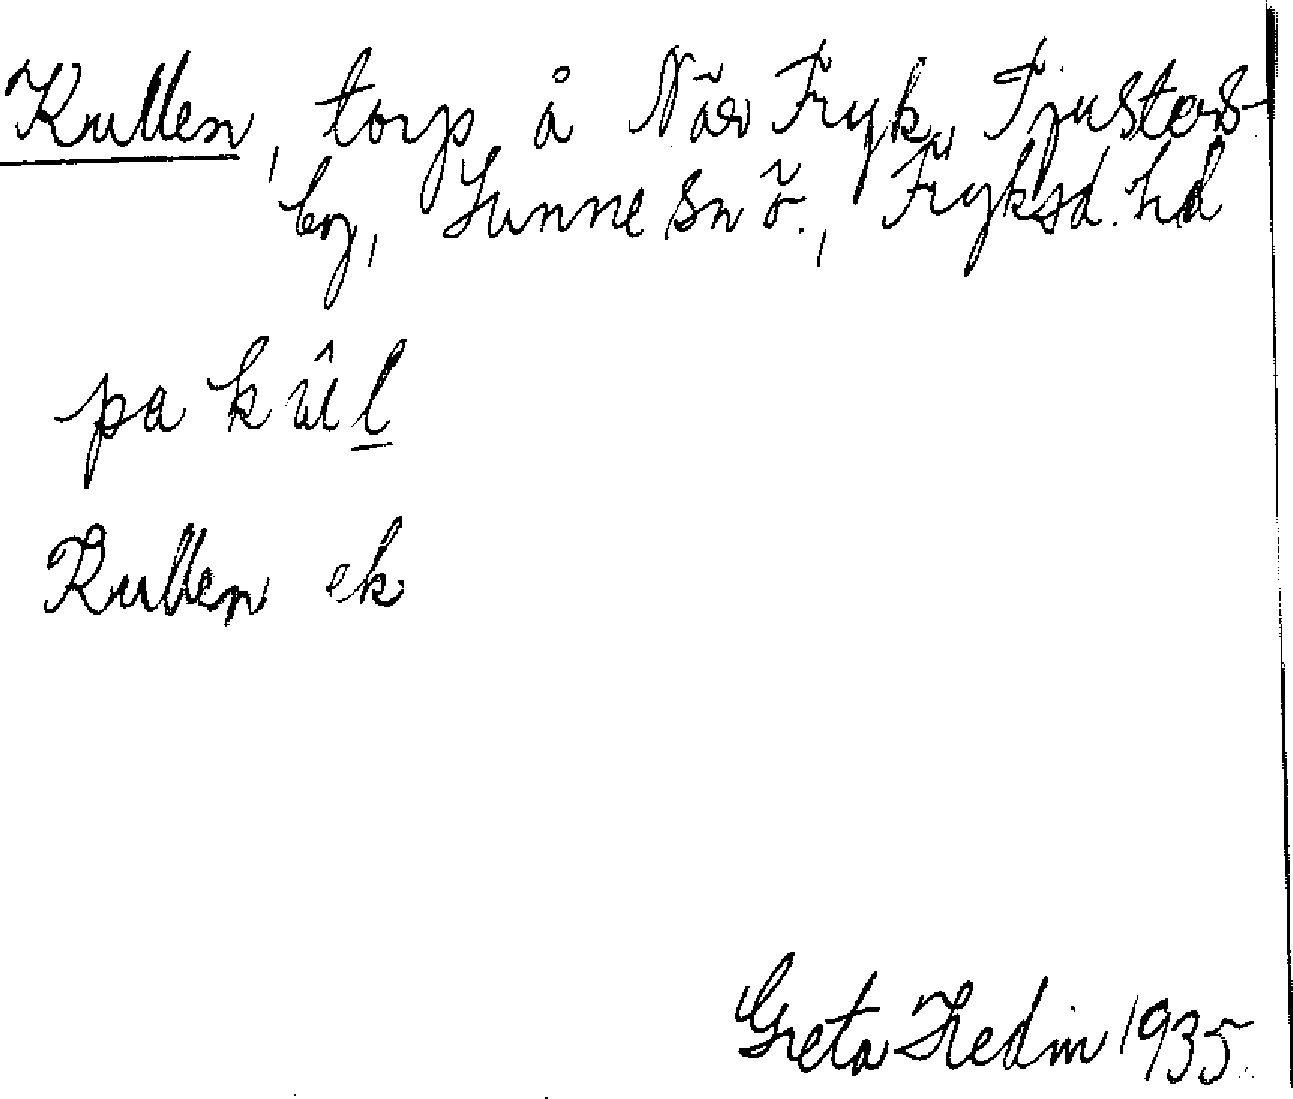 Kullen, torp å När Fryk, Tjusters-
by, Sunne sn ö., Fryksd. hd
pa kûl
Kullen ek
Greta Hedin 1935.